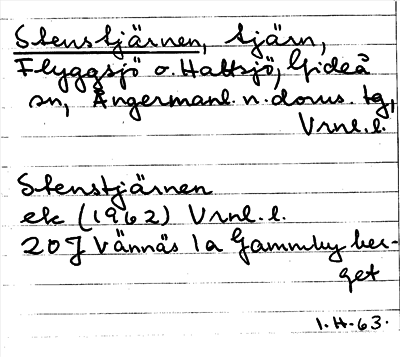 Stenstjärnen, tjärn,
Flyggsjö o. Hattsjö, Gideå
sn, Ångermanl. n. doms. tg,
Vrnl. l.
Stenstjärnen
ek (1962) Vrnl. l.
20J Vännäs 1a Gammbyber-
get
1.H.63.